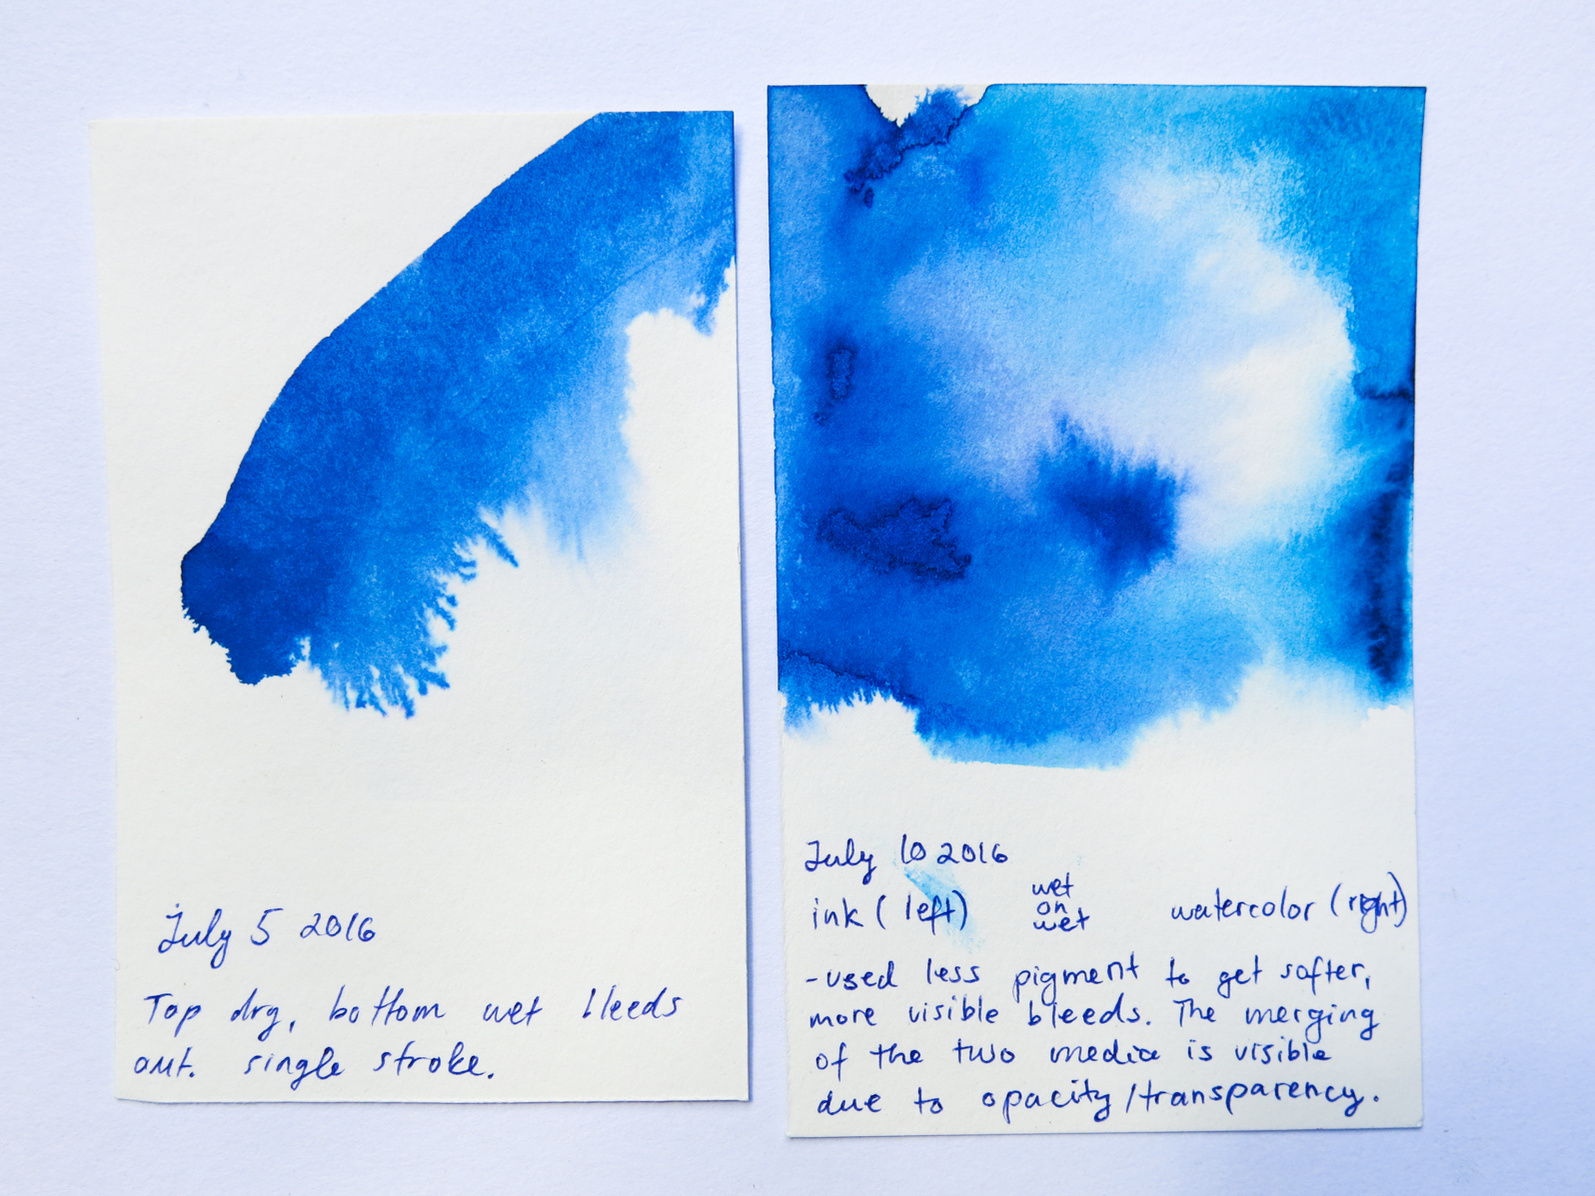 July 5 2016
Top dry, bottom wet bleeds
out. single stroke.
July 10 2016
ink (left) wet on wet watercolor (right)
-used less pigment to get softer,
more visible bleeds. The merging
of the two media is visible
due to opacity/transparency.